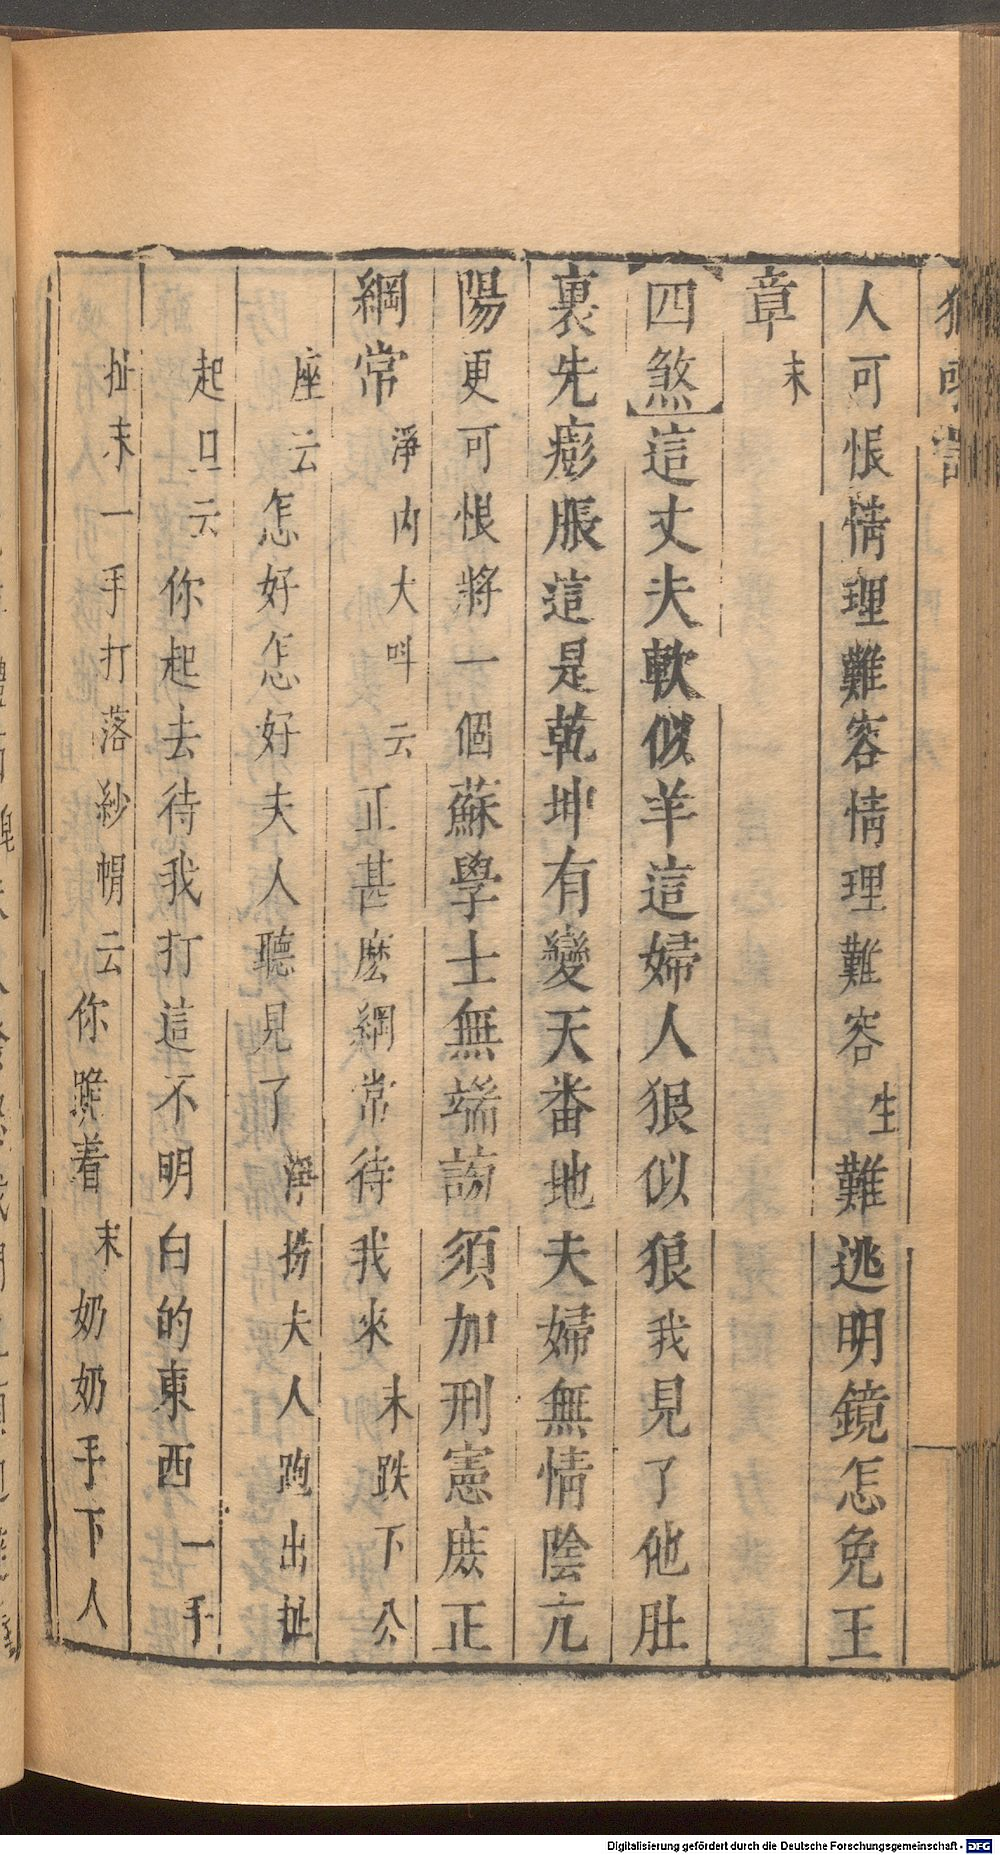 人可恨情理難容情理難容生難逃明鏡怎免王
章末
四煞這丈夫軟似羊這婦人狠似狼我見了他肚
裏先膨脹這是乾坤有變天番地夫婦無情陰亢
陽更可恨將一個蘇學士無端謗須加刑憲庻正
綱常淨內大呌云正甚麽綱常待我來末跌下公
座云怎好怎好夫人聽見了淨撈夫人跑出扯
起旦云你起去待我打這不明白的東西一手
扯末一手打落紗帽云你跪着末奶奶手下人
Digitalisierung gefördert durch die Deutsche Forschungsgemeinschaft - DFG